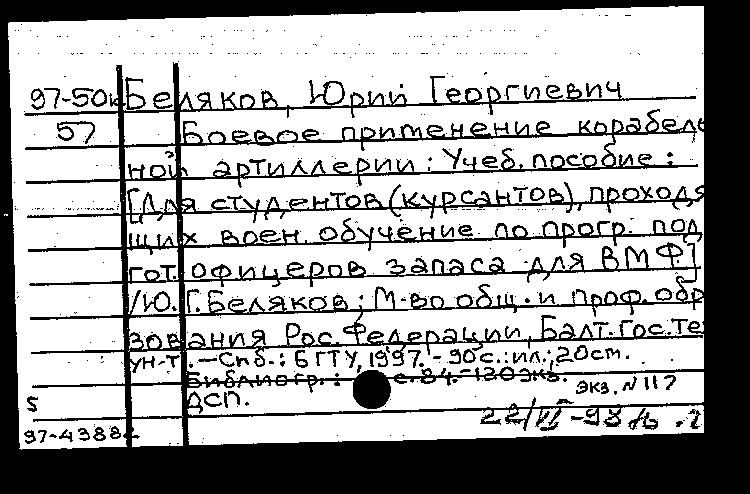 97-50к Беляков, Юрий Георгиевич
57 Боевое применение корабель
ной артиллерии: Учеб. пособие:
[Для студентов (курсантов), проходя
щих воен. обучение по прогр. под
гот. офицеров запаса для ВМФ]
/Ю.Г. Беляков; М-во общ. и проф. обр
зования Рос. Федерации, Балт. гос. те
ун-т. - Спб.: БГТУ, 1997. - 90 с.: ил.; 20 см.
Библиогр.: с. 84. - 120 экз.
экз. № 117
ДСП.
S
22/VI-98
97-4388